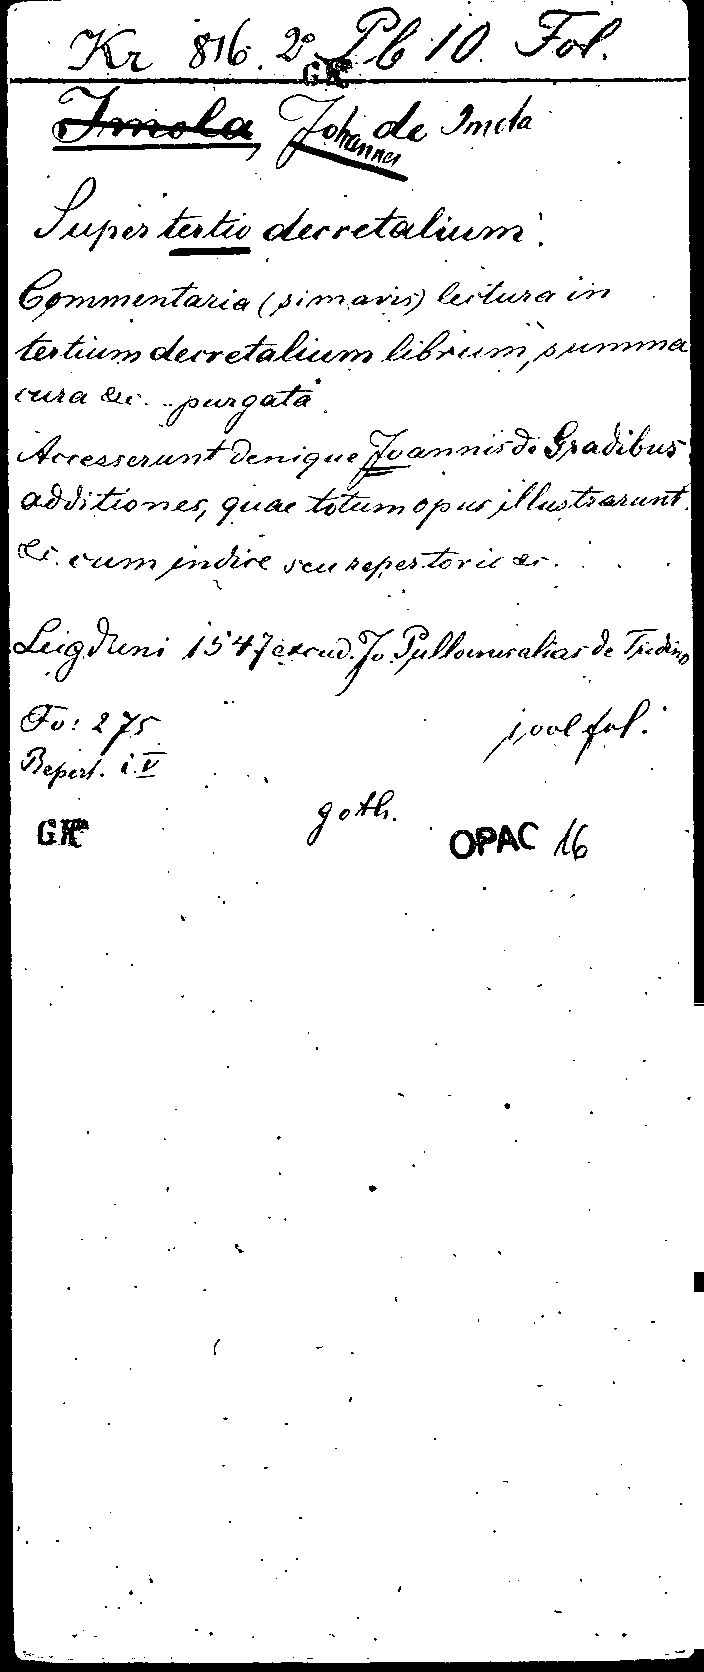 Kr 816. 2° Pb 10. Fol.
GK
Imola, Johannes de Imola
Super tertio decretalium.
Commentaria (si mavis) lectura in
tertium decretalium librum, summa
cura &c. .. purgata
Accesserunt denique Joannis de Gradibus
additiones, quae totum opus illustrarunt
&c. cum indice seu repertorio &c.
Lugduni 1547 excud. Jo. Pullonus alias de Tridino
Fo: 275
fol.
Repert. i V
goth.
GK
OPAC 16